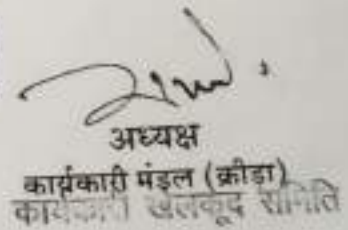 अध्यक्ष
कार्यकारी मंडल (क्रीड़ा)
कार्यकारी खेलकूद समिति